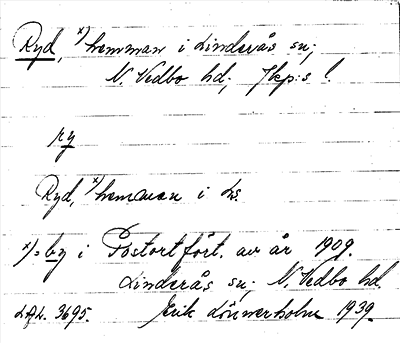 Ryd, x) hemman i Linderås sn;
N. Vedbo hd; Jkp:s l.
ry
Ryd, x) hemman i Ls.
x) = by i Postortfört. av år 1909.
Linderås sn; N. Vedbo hd.
LAL. 3695. Erik Lönnerholm 1939.